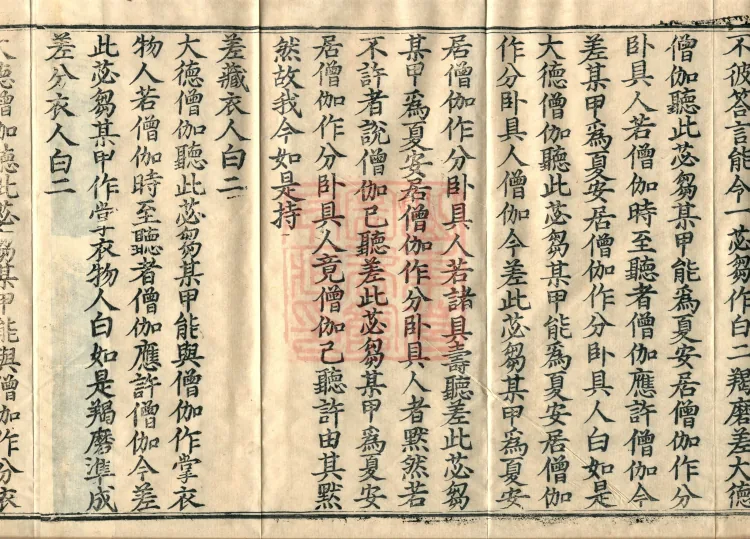 不彼答言能今一苾芻作白二羯磨差大德
僧伽聽此苾芻某甲能為夏安居僧伽作分
卧具人若僧伽時至聽者僧伽應許僧伽今
差某甲為夏安居僧伽作分卧具人白如是
大德僧伽聽此苾芻某甲能為夏安居僧伽
作分卧具人僧伽今差此苾芻某甲為夏安
居僧伽作分卧具人若諸具壽聽差此苾芻
某甲為夏安居僧伽作分卧具人者默然若
不許者說僧伽已聽差此苾芻某甲為夏安
居僧伽作分卧具人竟僧伽已聽許由其默
然故我今如是持
差藏衣人白二
大德僧伽聽此苾芻某甲能與僧伽作掌衣
物人若僧伽時至聽者僧伽應許僧伽今差
此苾芻某甲作掌衣物人白如是羯磨準成
差分衣人白二
大德僧伽聽此苾芻某甲能與僧伽作分衣